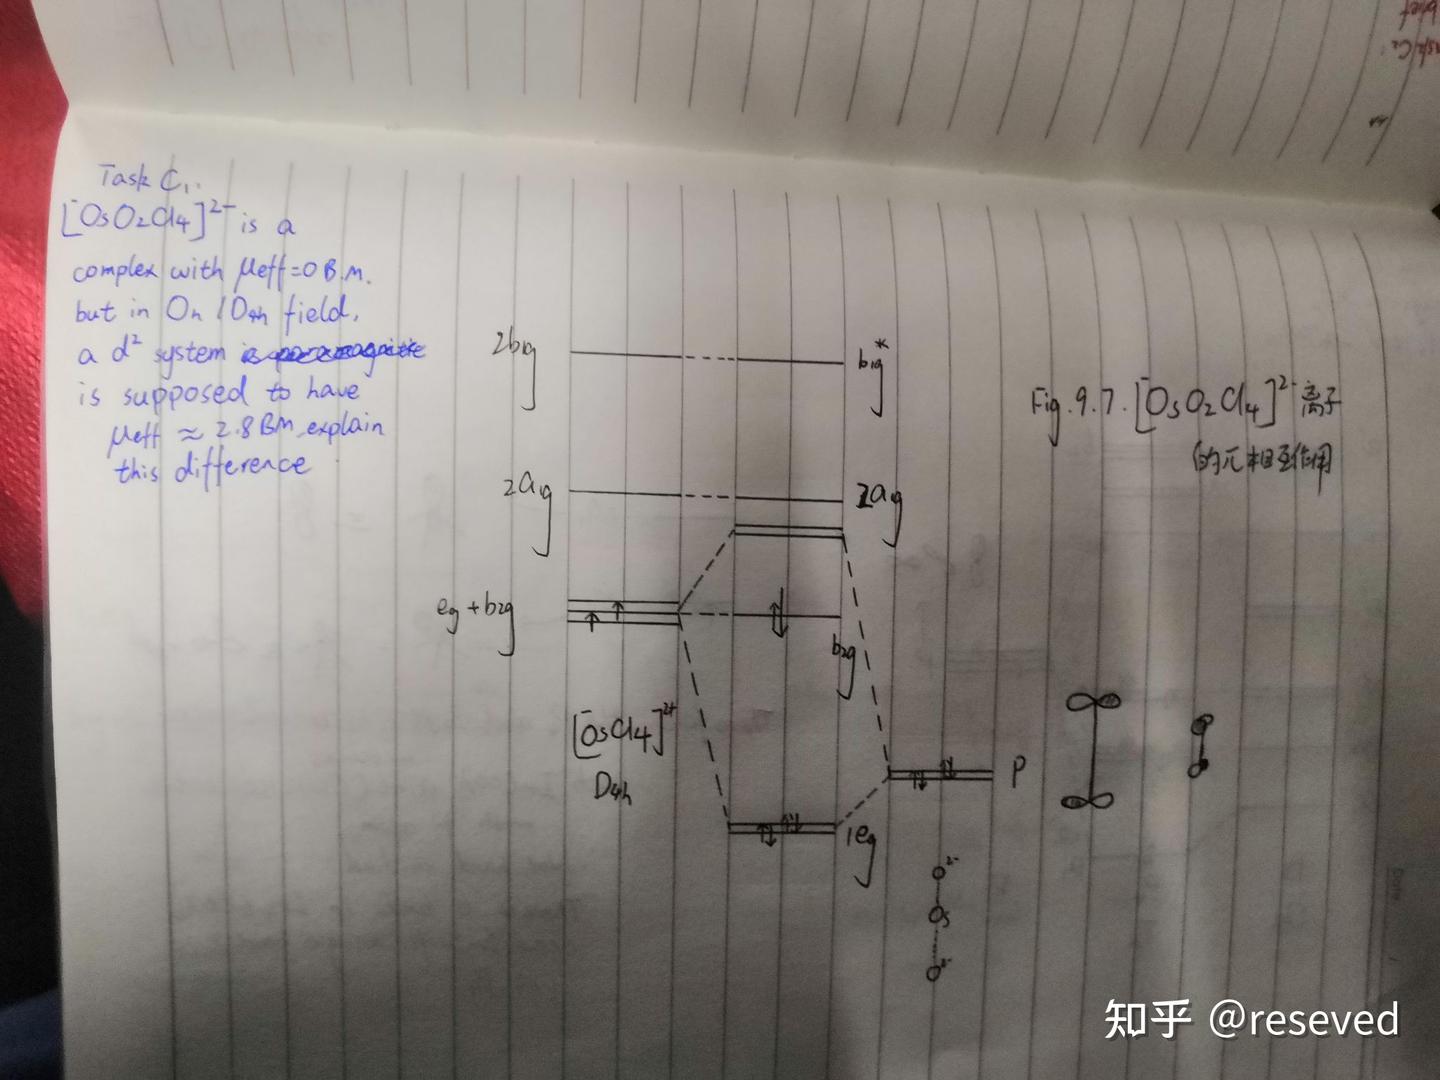 Task C1.
[OsO2Cl4]2- is a
complex with μeff=0 B.M.
but in Oh / D4h field,
a d2 system
is supposed to have
μeff ≈ 2.8 BM. explain
this difference
2b1g
b1g*
Fig.9.7.[OsO2Cl4]2- 离子
的π相互作用
2a1g
2a1g
eg + b2g
b2g
[OsCl4]2+
D4h
P
1eg
O2-
Os
O2-
知乎 @reseved